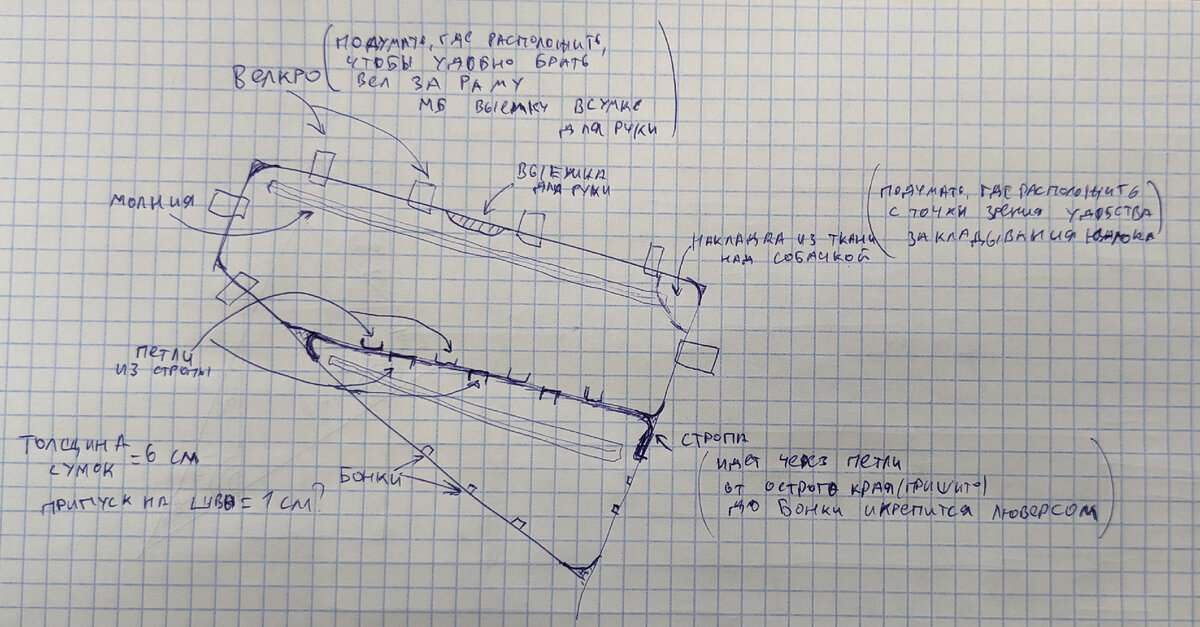 ВЕЛКРО
(ПОДУМАТЬ, ГДЕ РАСПОЛОЖИТЬ,
ЧТОБЫ УДОБНО БРАТЬ
ВЕЛ ЗА РАМУ
МБ ВЫЕМКУ В СУМКЕ
ДЛЯ РУКИ)
МОЛНИЯ
ВЫЕМКА
ДЛЯ РУКИ
(ПОДУМАТЬ, ГДЕ РАСПОЛОЖИТЬ
С ТОЧКИ ЗРЕНИЯ УДОБСТВА
ЗАКЛАДЫВАНИЯ)
НАКЛАДКА ИЗ ТКАНИ
НАД СОБАЧКОЙ
ПЕТЛИ
ИЗ СТРОПЫ
ТОЛЩИНА
СУМОК = 6 СМ
ПРИПУСК НА ШВЫ = 1 СМ?
БОНКИ
СТРОПА
(ИДЕТ ЧЕРЕЗ ПЕТЛИ
ОТ ОСТРОГО КРАЯ (ПРИШИТО)
ДО БОНКИ И КРЕПИТСЯ ЛЮВЕРСОМ)